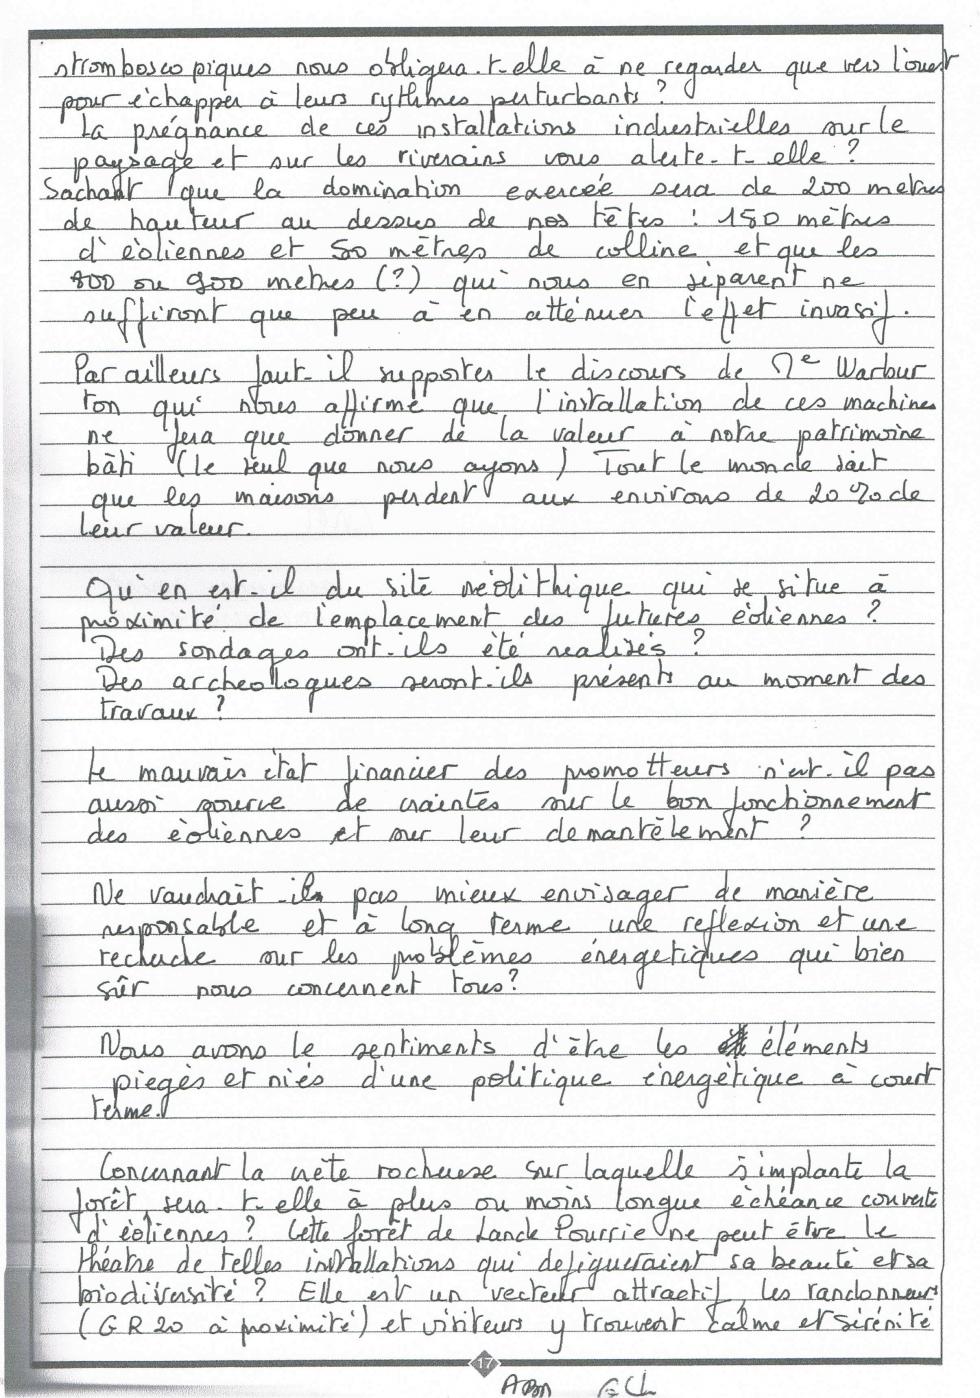 strombosco piques nous obligera-t-elle à ne regarder que vers l'ouest
pour échapper à leurs rythmes perturbants ?
La prégnance de ces installations industrielles sur le
paysage et sur les riverains vous alerte-t-elle ?
Sachant que la domination exercée sera de 200 metres
de hauteur au dessus de nos têtes : 150 mètres
d'éoliennes et 50 mètres de colline et que les
800 ou 900 metres (?) qui nous en séparent ne
suffiront que peu à en atténuer l'effet invasif.
Par ailleurs faut-il supporter le discours de Me Warbur
ton qui nous affirme que l'installation de ces machines
ne fera que donner de la valeur à notre patrimoine
bâti (le seul que nous ayons) Tout le monde sait
que les maisons perdent aux environs de 20 % de
leur valeur.
Qu'en est-il du site néolithique qui se situe à
proximité de l'emplacement des futures éoliennes ?
Des sondages ont-ils été realisés ?
Des archeologues seront-ils présents au moment des
travaux ?
Le mauvais état financier des promotteurs n'est-il pas
aussi source de craintes sur le bon fonctionnement
des éoliennes et sur leur demantèlement ?
Ne vaudrait-il pas mieux envisager de manière
responsable et à long terme une reflexion et une
recherche sur les problèmes énergetiques qui bien
sûr nous concernent tous?
Nous avons le sentiments d'être les éléments
piegés et niés d'une politique énergétique à court
terme.
Concernant la crète rocheuse sur laquelle s'implante la
forêt, sera-t-elle à plus ou moins longue échéance couverte
d'éoliennes ? Cette forêt de Lanck Pourrie ne peut être le
théatre de telles installations qui defigueraient sa beauté et sa
biodiversité ? Elle est un vecteur attractif, les randonneurs
(GR 20 à proximité) et visiteurs y trouvent calme et sérénité
17
ABM GCh